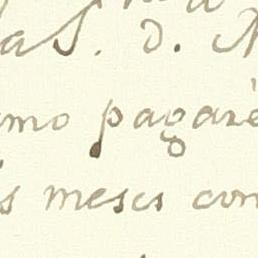 as. D.
mo pagaré
s meses con